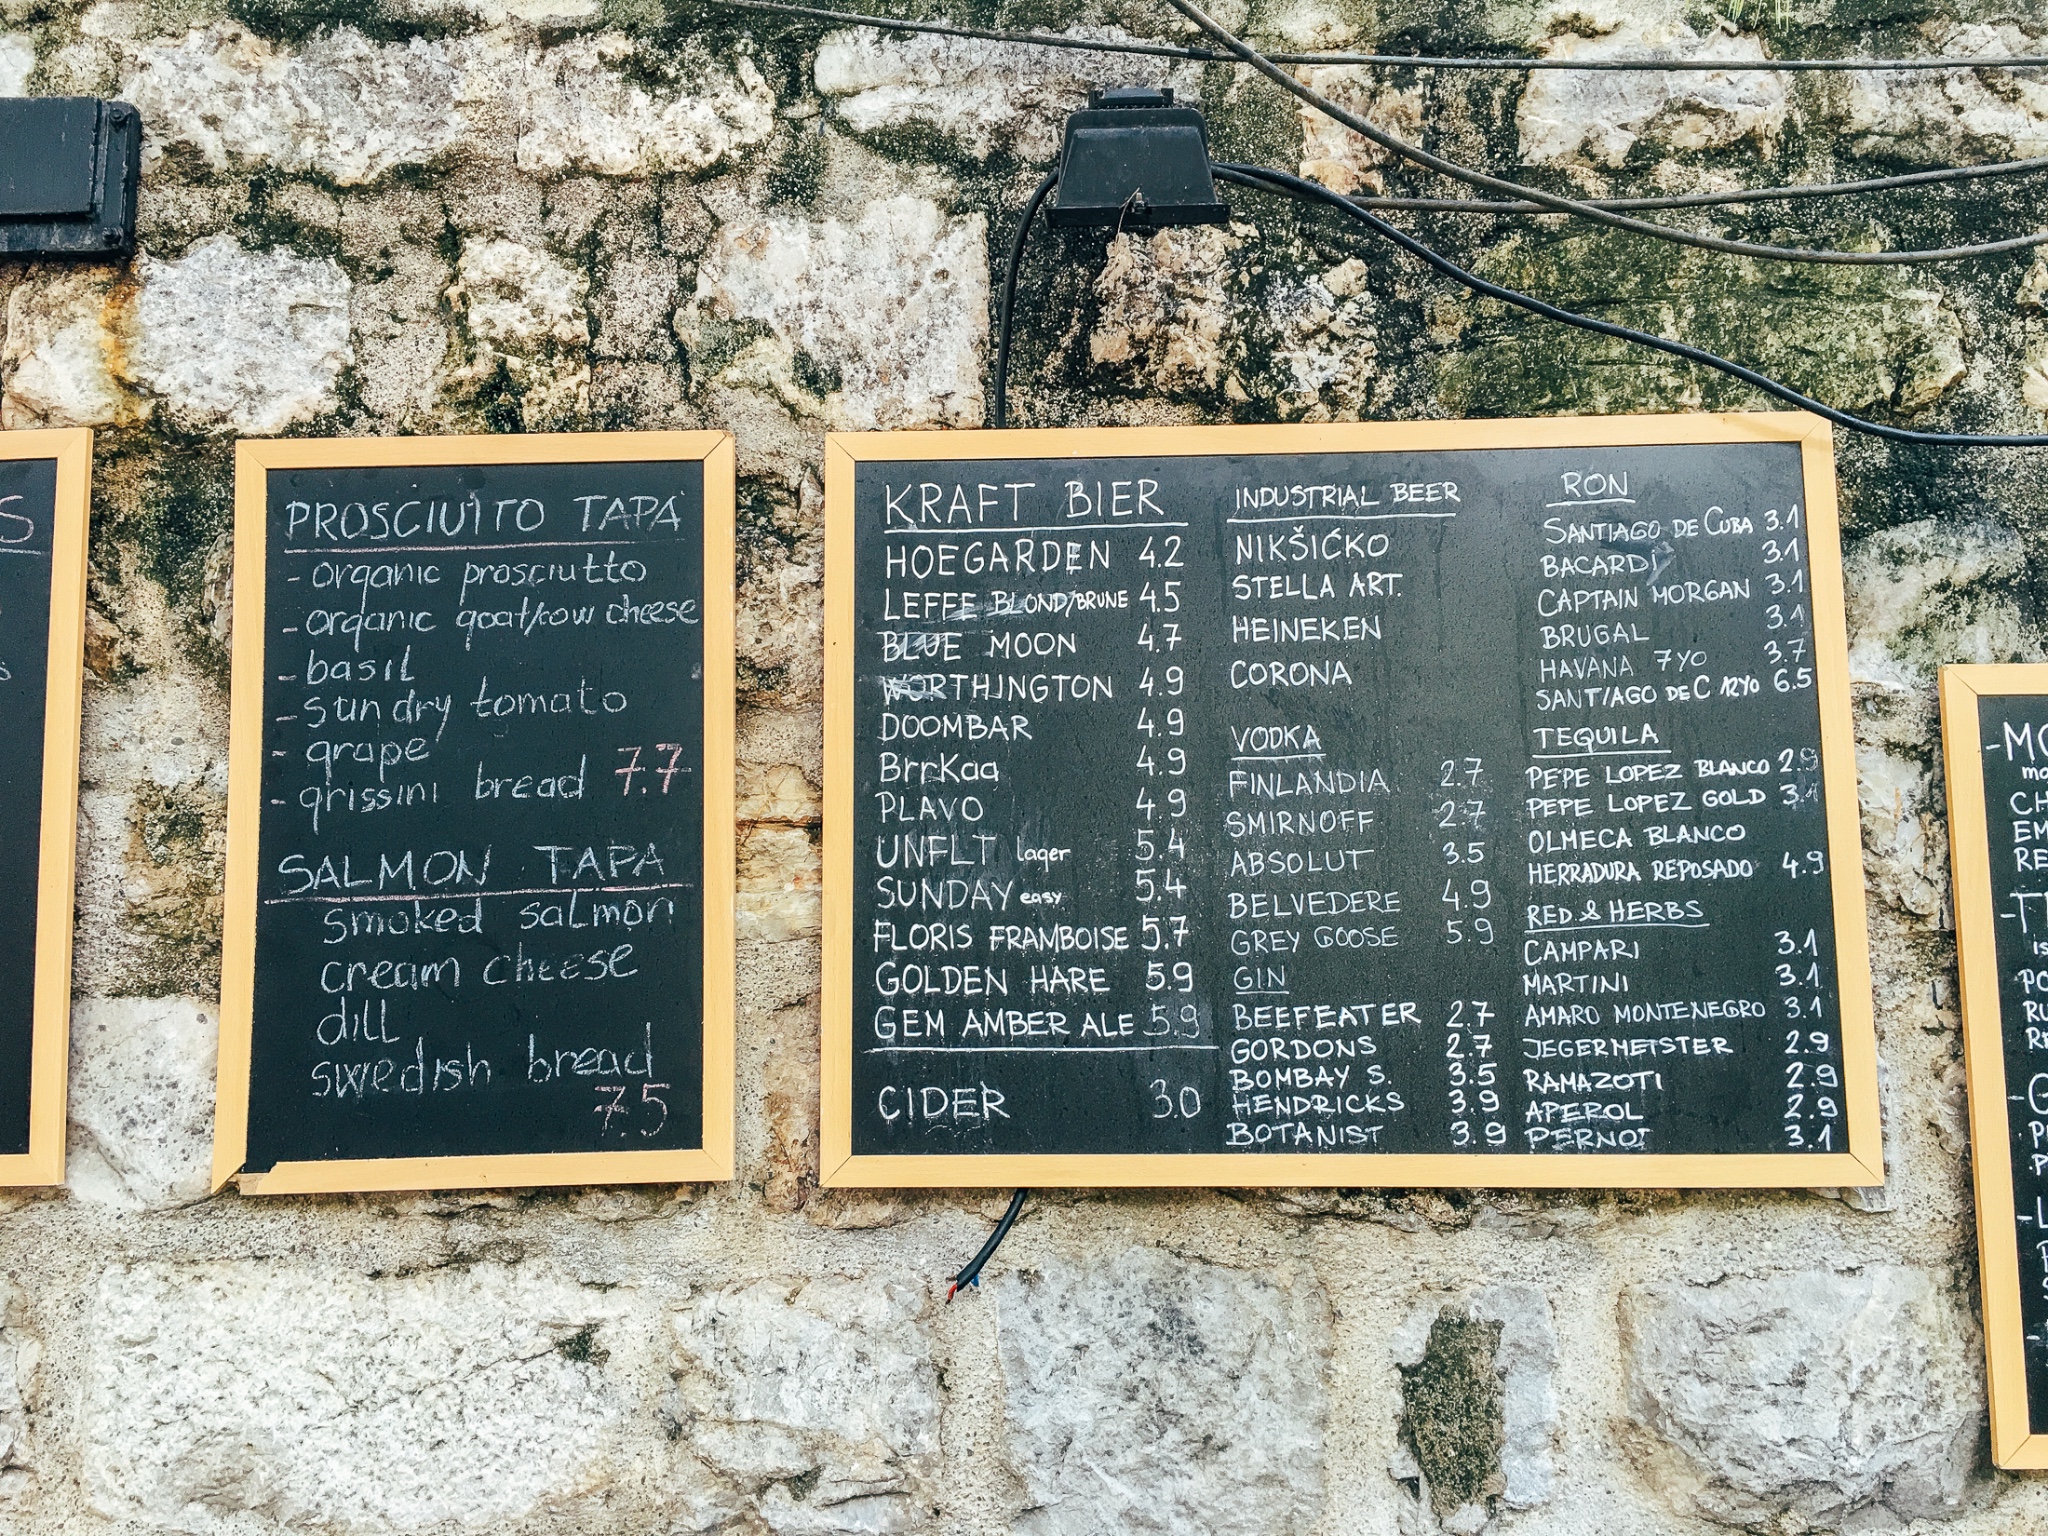 S
PROSCIUITO TAPA
- organic prosciutto
- organic goat/cow cheese
- basil
- sun dry tomato
- grape
- grissini bread 7.7
SALMON TAPA
smoked salmon
cream cheese
dill
swedish bread
7.5
KRAFT BIER
HOEGARDEN 4.2
LEFFE BLOND/BRUNE 4.5
BLUE MOON 4.7
WORTHINGTON 4.9
DOOMBAR 4.9
BrrKaa 4.9
PLAVO 4.9
UNFLT lager 5.4
SUNDAY easy 5.4
FLORIS FRAMBOISE 5.7
GOLDEN HARE 5.9
GEM AMBER ALE 5.9
CIDER 3.0
INDUSTRIAL BEER
NIKŠIĆKO
STELLA ART.
HEINEKEN
CORONA
VODKA
FINLANDIA 2.7
SMIRNOFF 2.7
ABSOLUT 3.5
BELVEDERE 4.9
GREY GOOSE 5.9
GIN
BEEFEATER 2.7
GORDONS 2.7
BOMBAY S. 3.5
HENDRICKS 3.9
BOTANIST 3.9
RON
SANTIAGO DE CUBA 3.1
BACARDI 3.1
CAPTAIN MORGAN 3.1
BRUGAL 3.1
HAVANA 7YO 3.7
SANTIAGO DE C 12YO 6.5
TEQUILA
PEPE LOPEZ BLANCO 2.9
PEPE LOPEZ GOLD 3.1
OLMECA BLANCO
HERRADURA REPOSADO 4.9
RED & HERBS
CAMPARI 3.1
MARTINI 3.1
AMARO MONTENEGRO 3.1
JEGERMEISTER 2.9
RAMAZOTI 2.9
APEROL 2.9
PERNOT 3.1